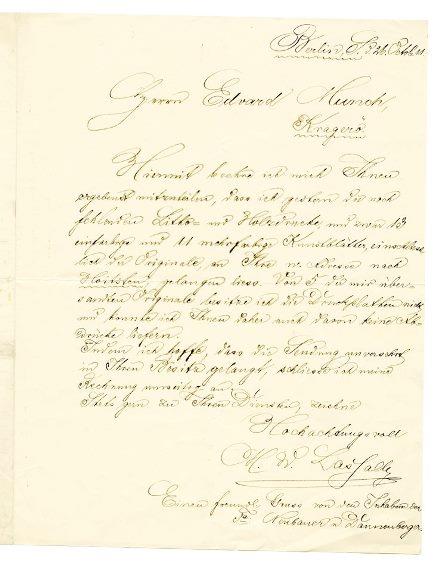 Berlin, S. d. 26. Octob. 11.
Herrn Edvard Munch,
Kragerö.
Hiermit beehre ich mich Ihnen
ergebenst mitzuteilen, dass ich gestern die noch
fehlenden Litho- und Holzdrucke, und zwar 13
einfarbige und 11 mehrfarbige Kunstblätter, einschliess-
lich die Originale, an Ihre w. Adresse nach
Hvitsten gelangen liess. Von 2 die mir über-
sandten Originale besitze ich die Druckplatten nicht
und konnte ich Ihnen daher auch davon keine Ab-
drücke liefern.
Indem ich hoffe, dass die Sendung unversehrt
in Ihren Besitz gelangt, schliesse ich meine
Rechnung umseitig an.
Stets gern zu Ihren Diensten, zeichne
Hochachtungsvoll
M. W. Lassally
Einen freundl. Gruss von den Inhabern der
Fa. Neubauer u. Dannenberger